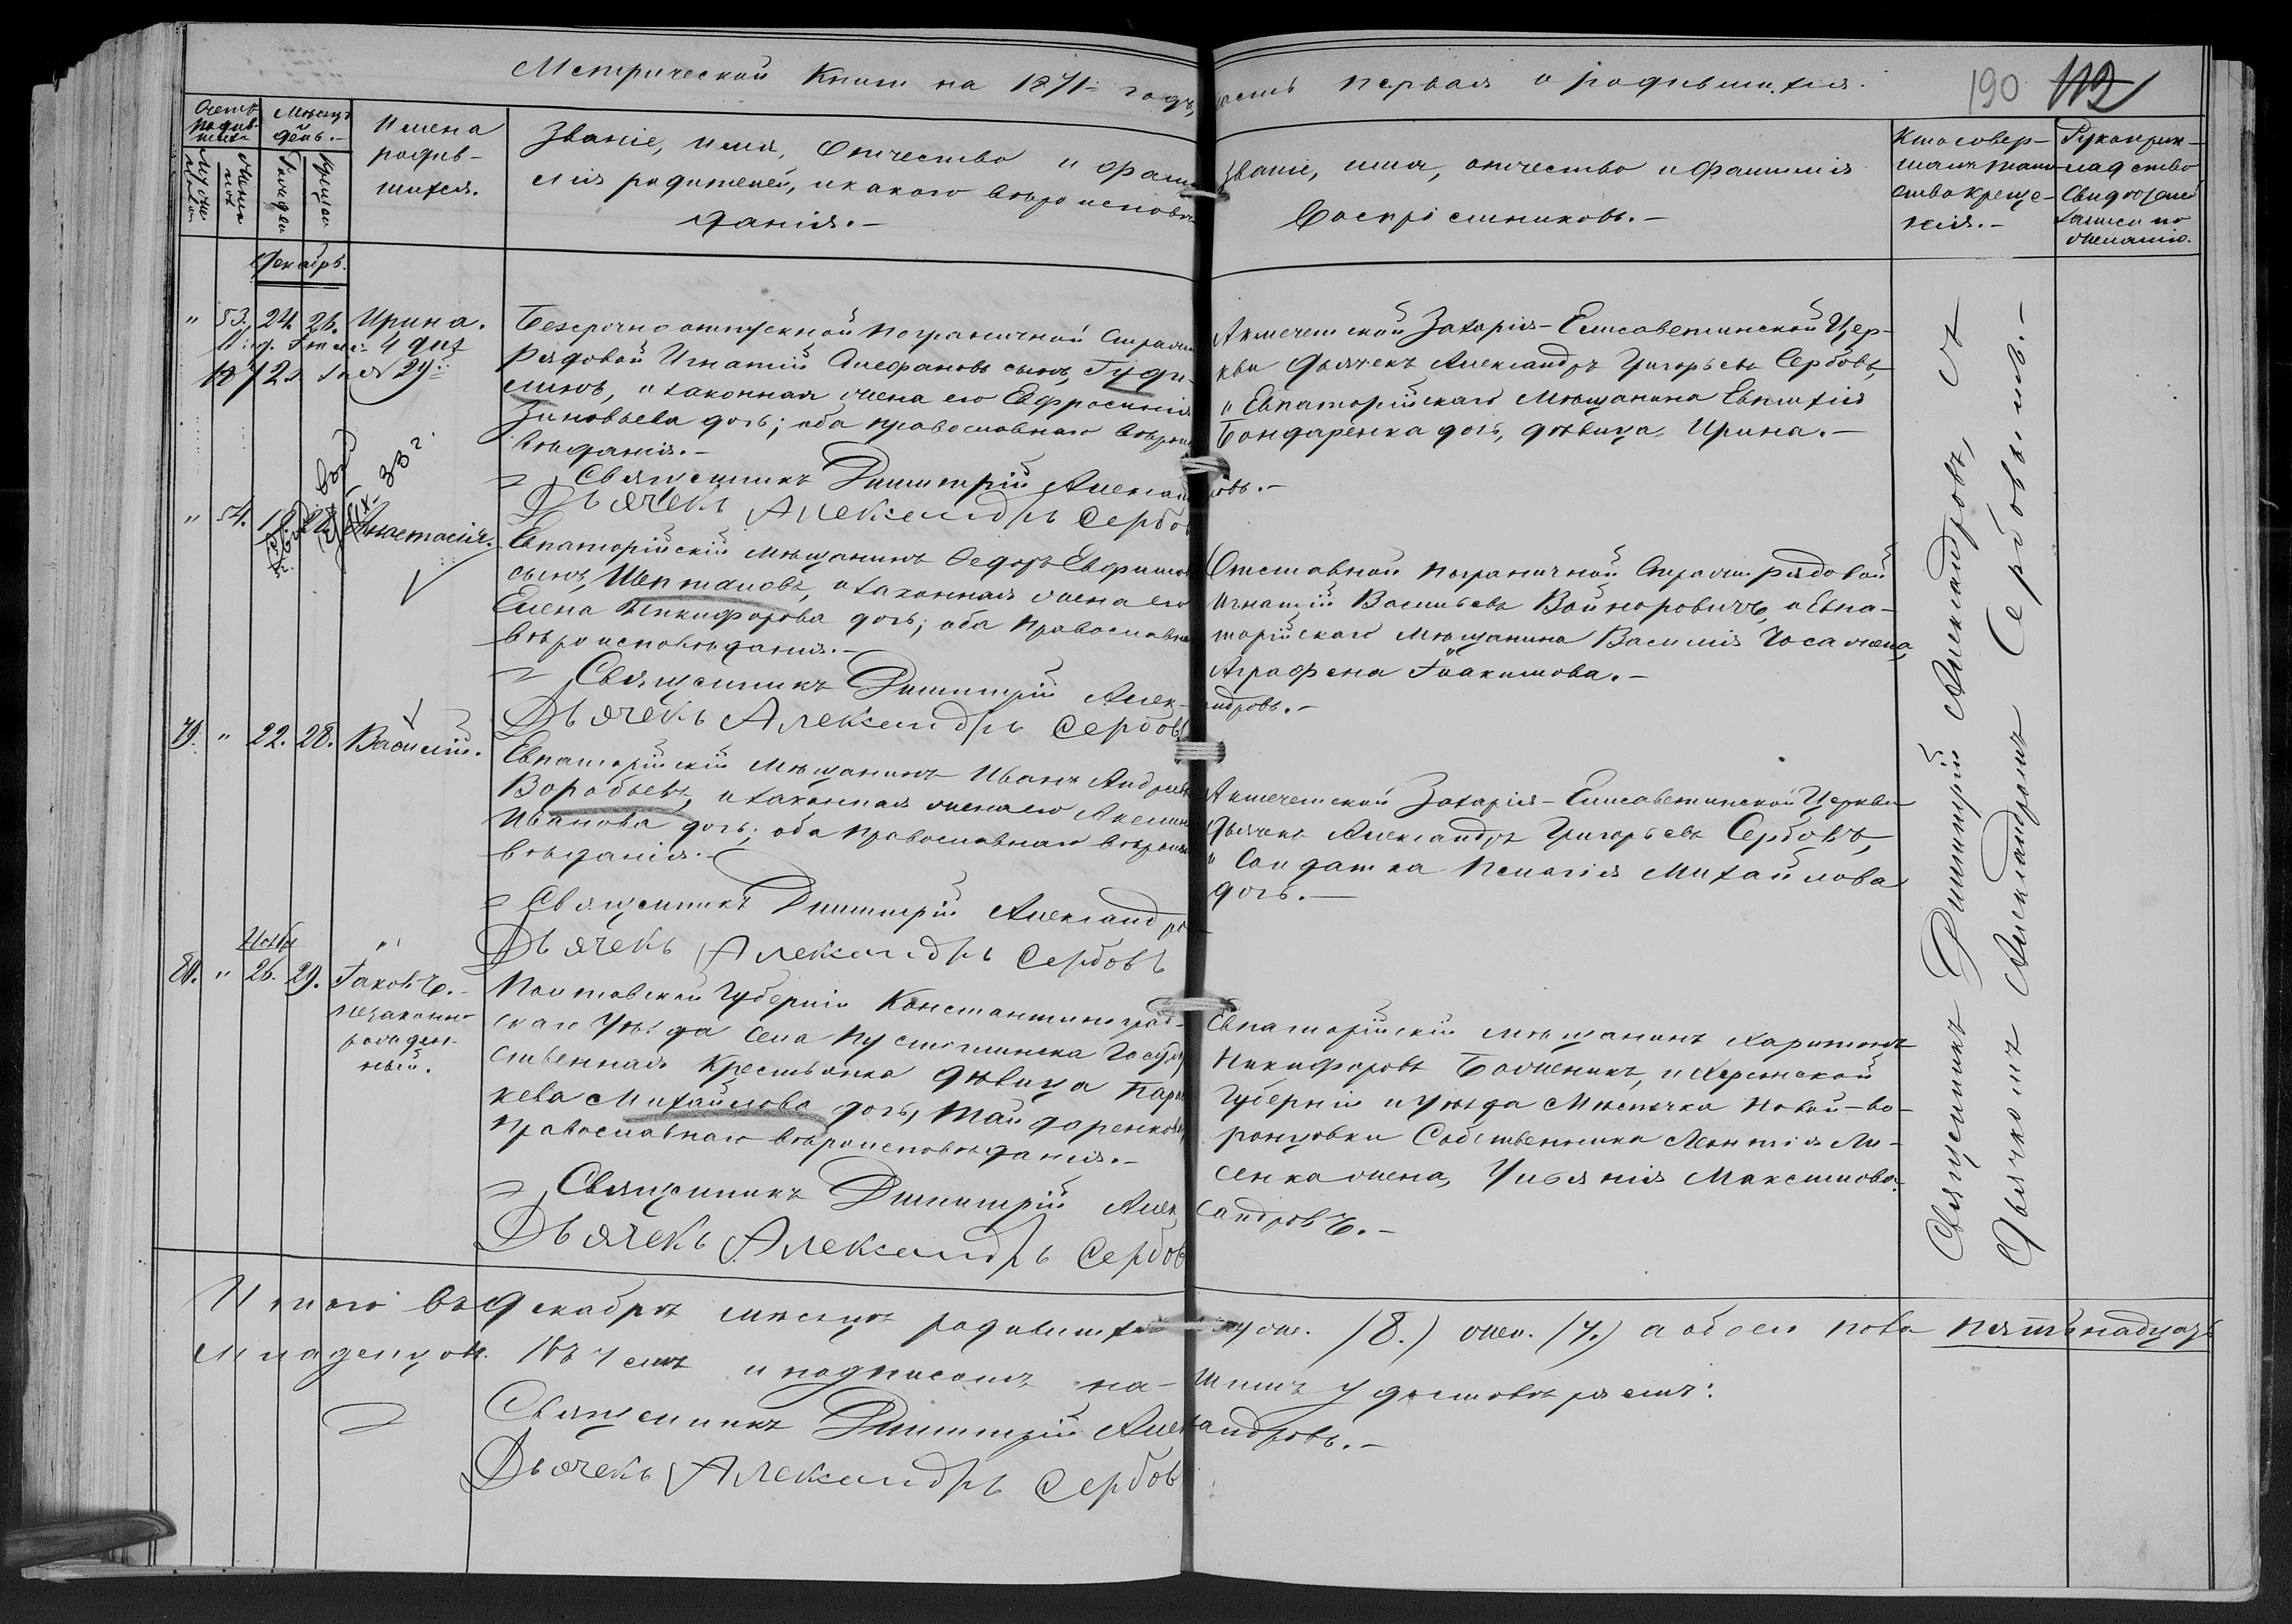 Метрической Книги на 1871й годъ, часть первая о родившихся.
190 112
Счетъ родив-
шихся
Мужеска
Женска
Мѣсяцъ и
день.-
Рожденія
Крещенія
Имена
родив-
шихся.
Званіе, имя, Отчество и фами-
лія родителей, и какого вѣроисповѣ-
данія.-
Званіе, имя, отчество и фамилія
Воспріемниковъ.-
Кто совер-
шалъ таин-
ство креще-
нія.-
Рукоприк-
ладство
свидѣтелей
записи по
желанію.
Декабрь.
" 53. 24. 26. Ирина.
4 дек
1872 г. за № 29й
Безсрочно отпускной пограничной Стражи
Рядовой Игнатій Алефановъ сынъ, Гуди-
линъ, и законная жена его Евфросинія
Зиновьева дочь; оба православнаго вѣроиспо-
вѣданія.-
Акмечетской Захарія-Елисаветинской Цер-
кви дьячекъ Александръ Григорьевъ Сербовъ,
и Евпаторійскаго Мѣщанина Евтихія
Бондаренка дочь, дѣвица, Ирина.-
Священникъ Димитрій Александровъ.-
Дьячекъ Александръ Сербовъ
33 г.
" 54. Анастасія.
Евпаторійскій мѣщанинъ Ѳедоръ Евфимовъ
сынъ, Шепталовъ, и законная жена его
Елена Никифорова дочь; оба православнаго
вѣроисповѣданія.-
Отставной пограничной Стражи рядовой
Игнатій Васильевъ Войноровичъ, и Евпа-
торійскаго мѣщанина Василія Чоса жена,
Аграфена Іоакимова.-
Священникъ Димитрій Александровъ.-
Дьячекъ Александръ Сербовъ
79. " 22. 28. Василій.
Евпаторійскій мѣщанинъ Иванъ Андреевъ
Воробьевъ, и законная жена его Акелина
Иванова дочь; оба православнаго вѣроиспо-
вѣданія.-
Акмечетской Захарія-Елисаветинской Церкви
дьячекъ Александръ Григорьевъ Сербовъ,
и Солдатка Пелагія Михайлова
дочь.-
Священникъ Димитрій Александровъ
Дьячекъ Александръ Сербовъ
Ноября
80. " 26. 29. Іаковъ.-
незаконно-
рожден-
ный.
Полтавской Губерніи Константиноград-
скаго Уѣзда села Государ-
ственная Крестьянка дѣвица Парас-
кева Михайлова дочь, Майдаренкова,
православнаго вѣроисповѣданія.-
Евпаторійскій мѣщанинъ Харитонъ
Никифоровъ Боженикъ, и Херсонской
Губерніи и уѣзда Мѣстечка Новой-Во-
ронцовки Собственника Леонтія Ли-
сенка жена, Уліянія Максимова.
Священникъ Димитрій Александровъ.-
Дьячекъ Александръ Сербовъ
Священникъ Димитрій Александровъ, съ
Дьячкомъ Александромъ Сербовымъ.-
Итого въ Декабрѣ мѣсяцѣ родившихся муж. /8./ жен. /7./ а обоего пола пятьнадцать
младенцовъ. Въ чемъ и подписомъ на-шимъ удостовѣряемъ:
Священникъ Димитрій Александровъ.-
Дьячекъ Александръ Сербовъ